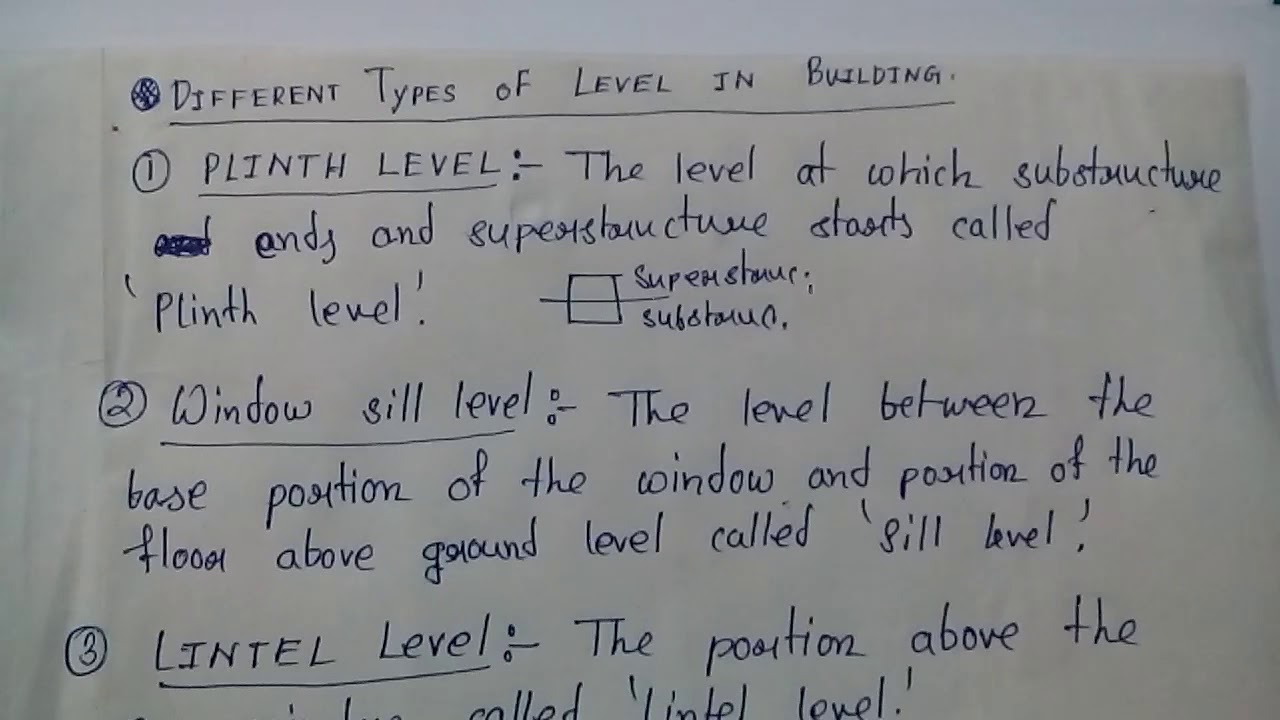 DIFFERENT TYPES OF LEVEL IN BUILDING.
① PLINTH LEVEL:- The level at which substructure
ends and superstructure starts called
'Plinth level'.
superstruc;
substruc.
② Window sill level:- The level between the
base portion of the window and portion of the
floor above ground level called 'sill level'.
③ LINTEL Level:- The portion above the
window called 'lintel level.'